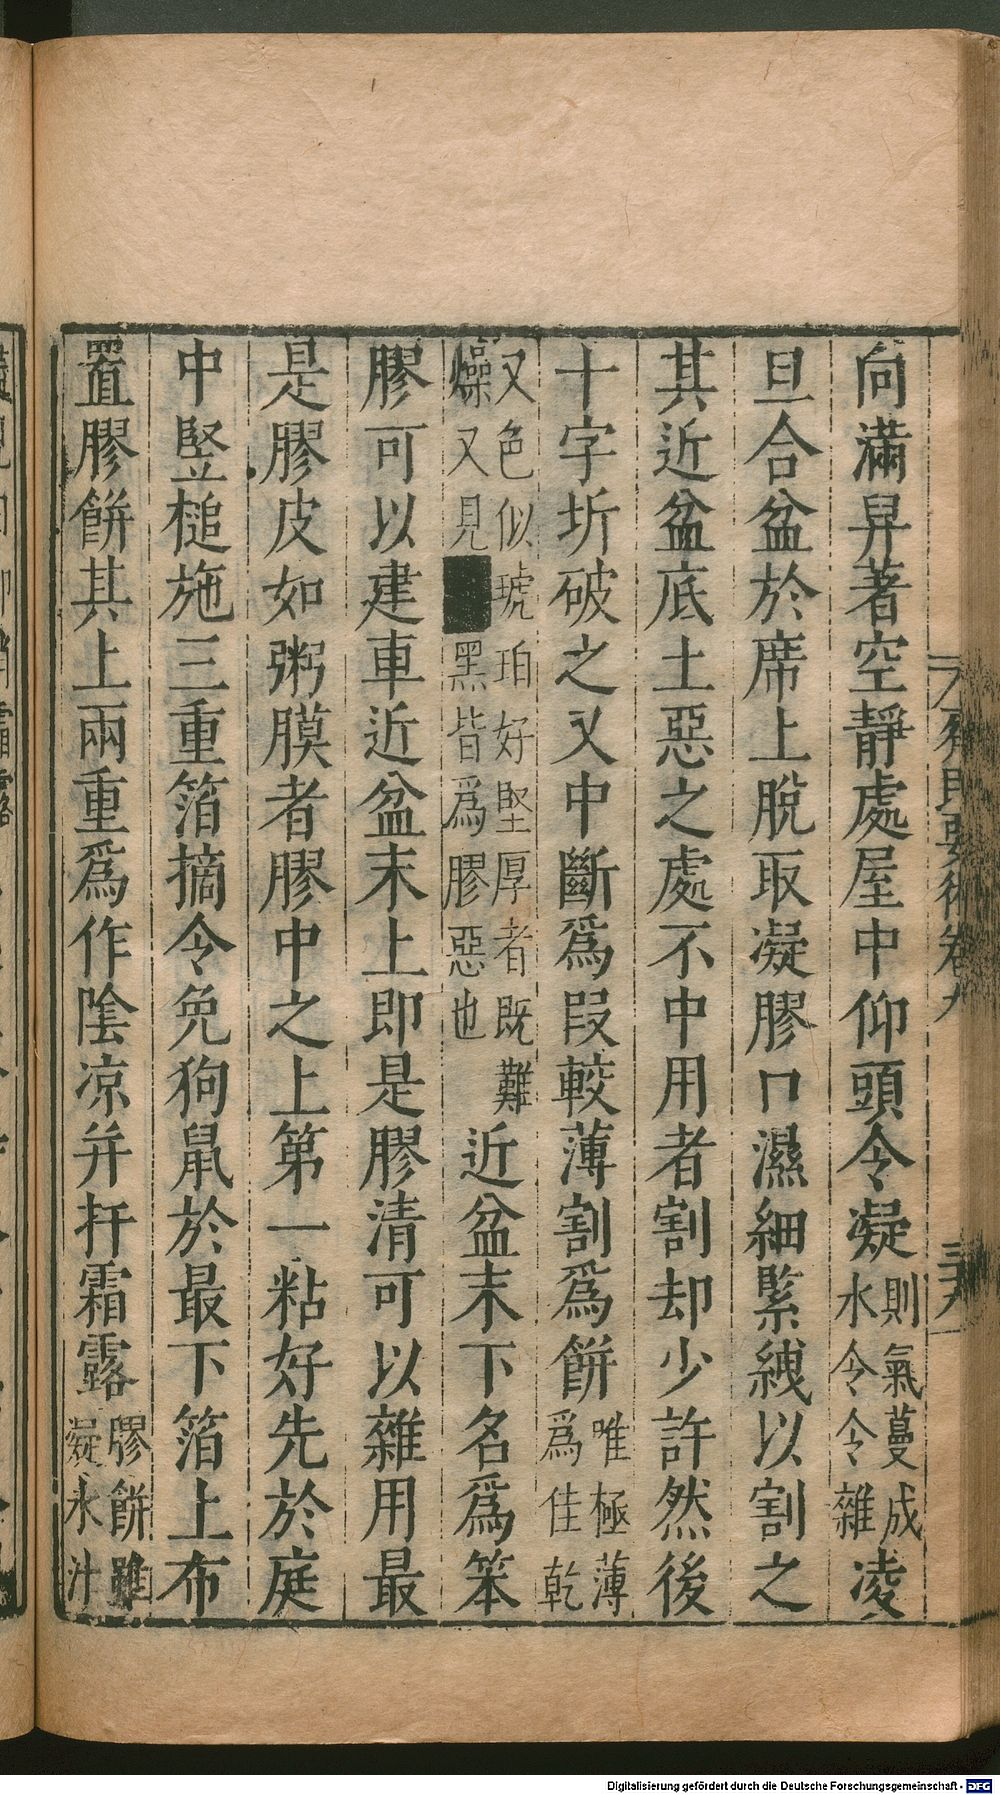 向滿舁著空靜處屋中仰頭令凝則氣蔓成水令令雜凌
旦合盆於席上脫取凝膠口濕細緊綫以割之
其近盆底土惡之處不中用者割却少許然後
十字坼破之又中斷爲段較薄割爲餅唯極薄爲佳乾
又色似琥珀好堅厚者既難燥又見黑皆爲膠惡也近盆末下名爲笨
膠可以建車近盆末上即是膠清可以雜用最
是膠皮如粥膜者膠中之上第一粘好先於庭
中竪槌施三重箔摘令免狗鼠於最下箔上布
置膠餅其上兩重爲作陰凉并扞霜露膠餅雖凝水汁
齊民要術卷九
Digitalisierung gefördert durch die Deutsche Forschungsgemeinschaft - DFG